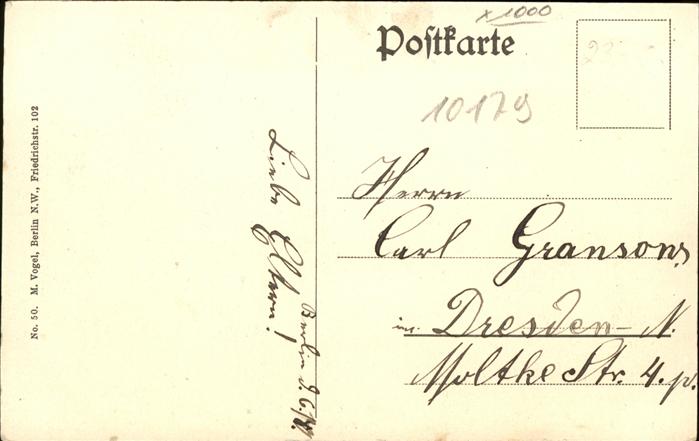 x 1000
Postkarte
10179
Herrn
Carl Gransow,
in Dresden-N.
Moltke Str. 4. p.
Berlin d. 6/
Liebe Eltern!
No. 50. M. Vogel, Berlin N.W., Friedrichstr. 102